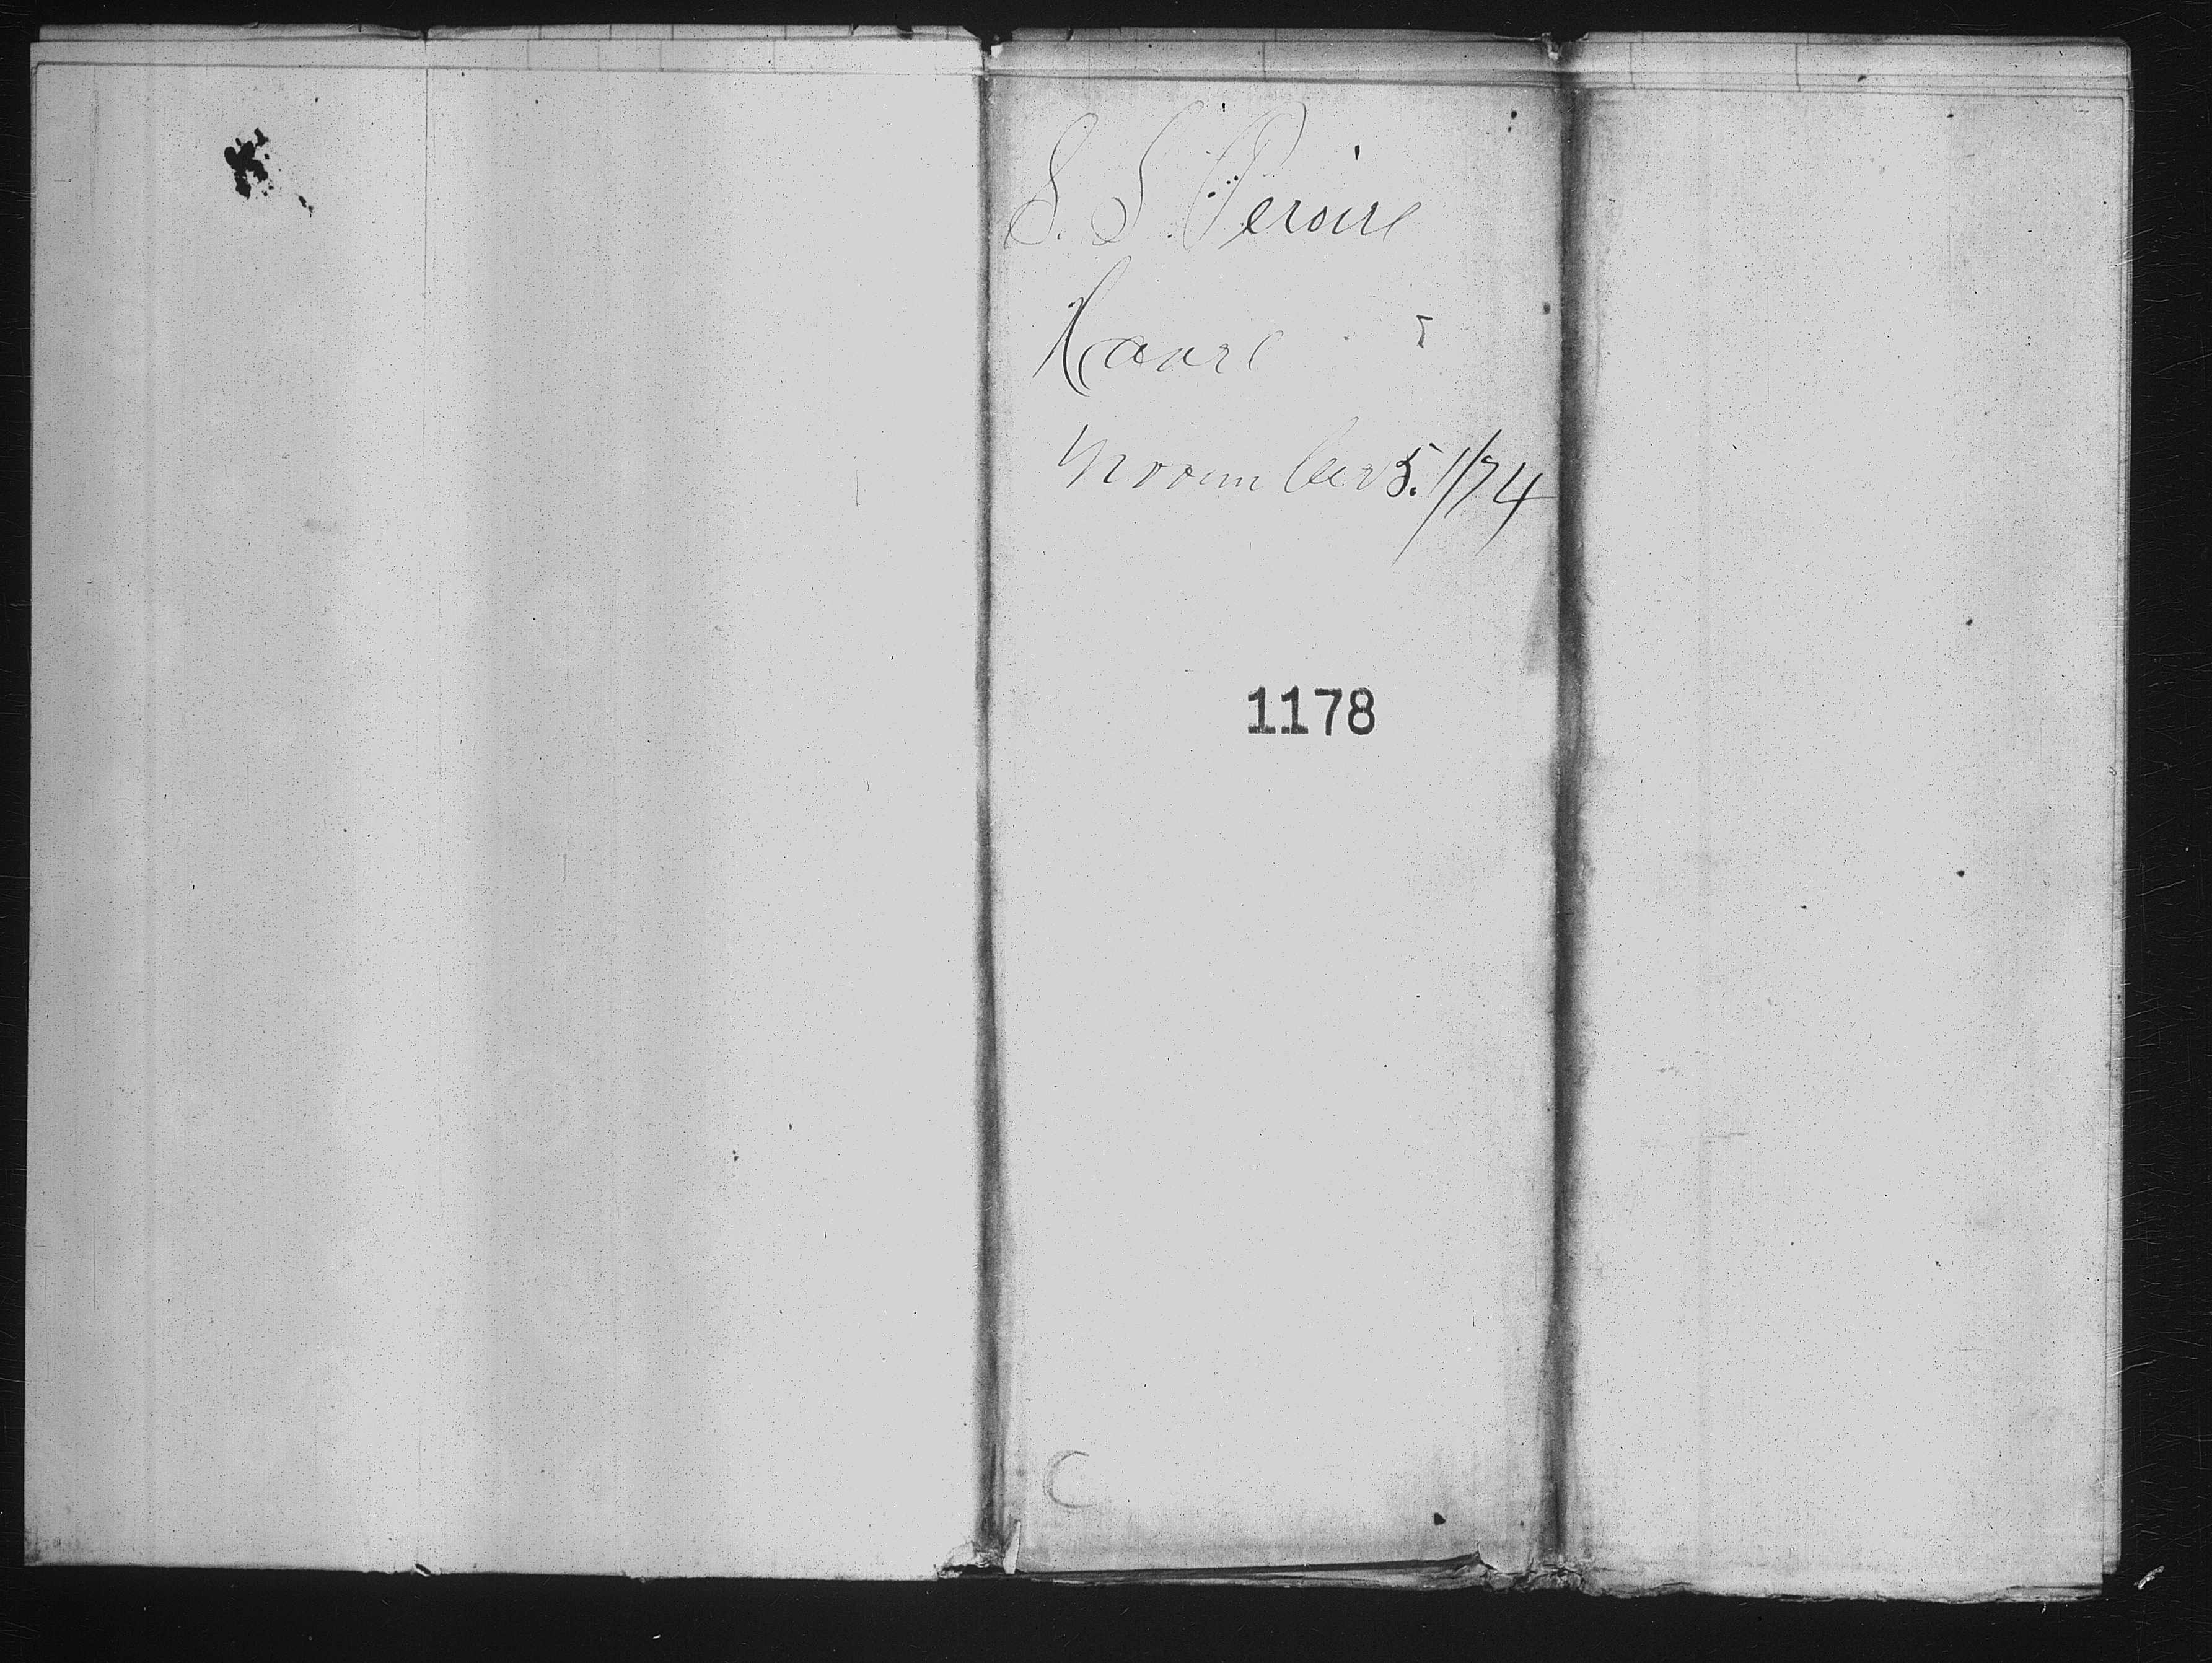 S. S. Pereire
Havre
November 5. 1/74
1178
C